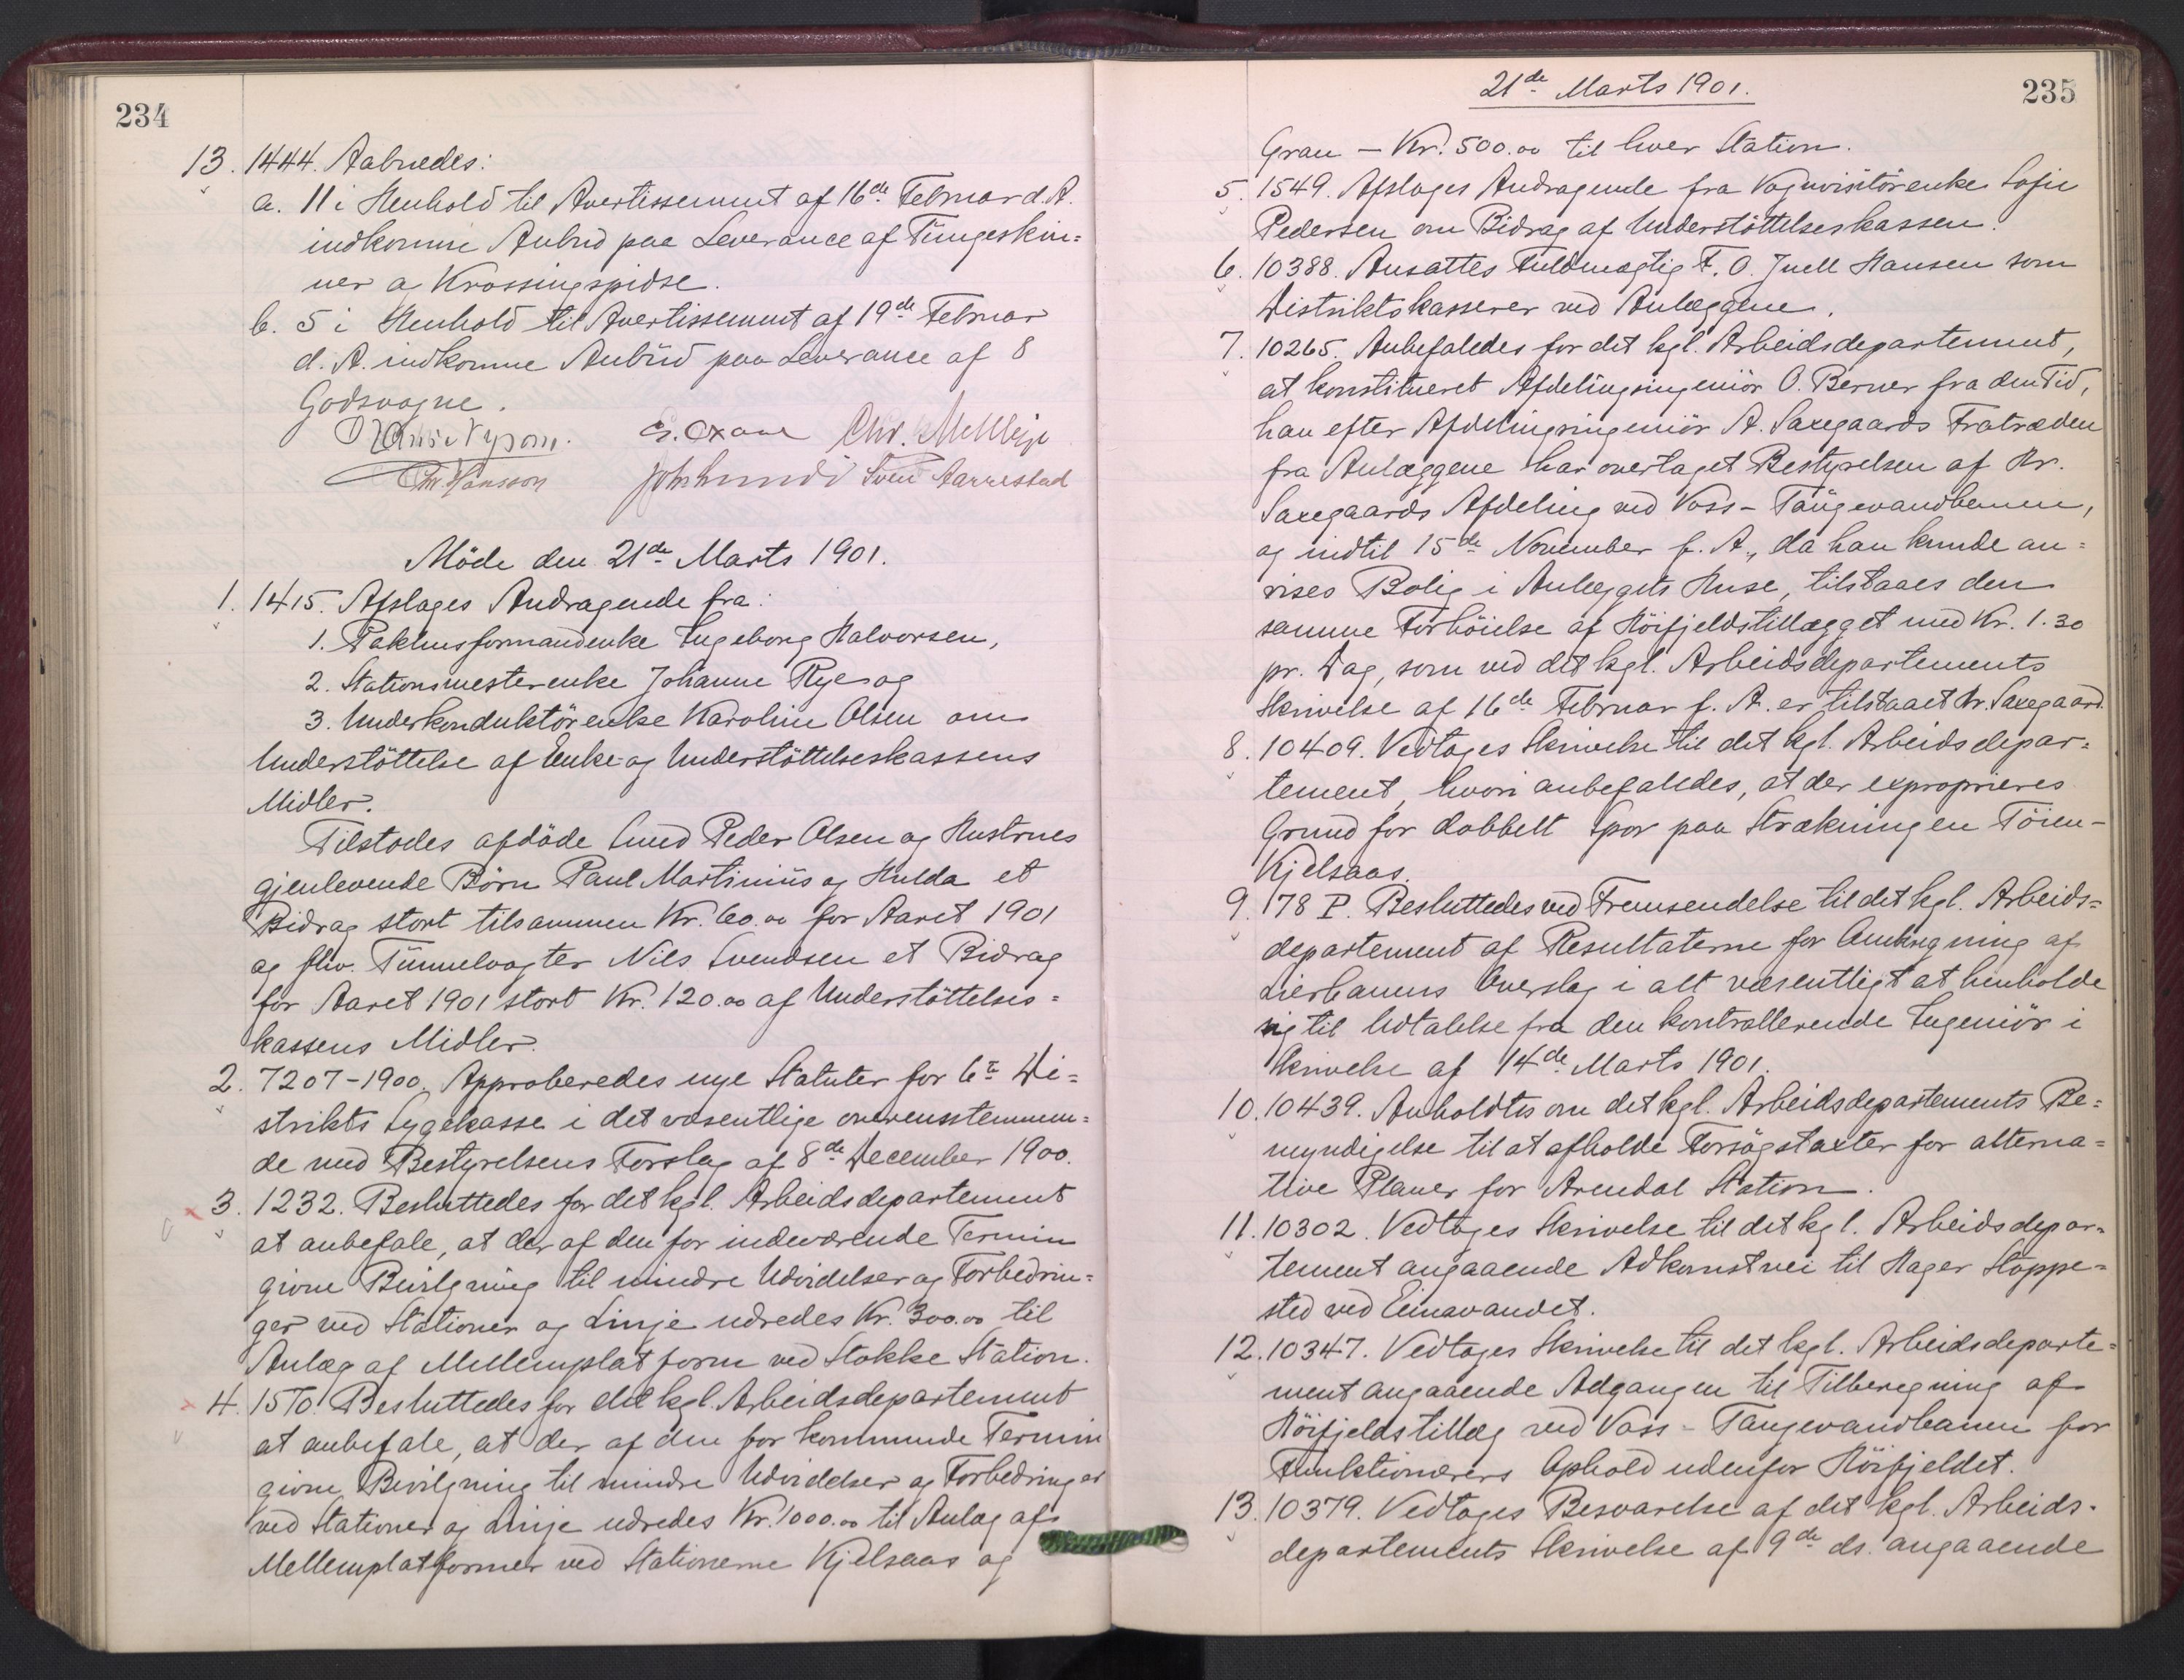 234
13. 1444. Aabnedes:
a. 11 i Henhold til Avertissement af 16de Februar d. A.
indkomne Anbud paa Leverance af Tungeskin=
ner og Krossingspidse.
b. 5 i Henhold til Avertissement af 19de Februar
d. A. indkomne Anbud paa Leverance af 8
Godsvogne.
Nysom. E. Oxaae Chr.
Chr. Hansson Joh Lunde Sven Aarrestad
Möde den 21de Marts 1901.
1. 1415. Afsloges Andragende fra:
1. Pakhusformandenke Ingeborg Halvorsen,
2. Stationsmesterenke Johanne Rye og
3. Underkonduktörenke Karoline Olsen om
Understöttelse af Enke- og Understöttelseskassens
Midler.
Tilstodes afdöde Smed Peder Olsen og Hustrues
gjenlevende Börn Paul Martinius og Hulda et
Bidrag stort tilsammen Kr. 60.00 for Aaret 1901
og fhv. Tunnelvogter Nils Svendsen et Bidrag
for Aaret 1901 stort Kr. 120.00 af Understöttelses=
kassens Midler.
2. 7207-1900. Approberedes nye Statuter for 6te Di=
strikts Sygekasse i det væsentlige overensstemmen=
de med Bestyrelsens Forslag af 8de December 1900.
3. 1232. Besluttedes for det kgl. Arbeidsdepartement
at anbefale, at der af den for indeværende Termin
givne Bevilgning til mindre Udvidelser og Forbedrin=
ger ved Stationer og Linje udredes Kr. 300.00 til
Anlæg af Mellemplatform ved Stokke Station.
4. 1570. Besluttedes for det kgl. Arbeidsdepartement
at anbefale, at der af den for kommende Termin
givne Bevilgning til mindre Udvidelser og Forbedringer
ved Stationer og Linje udredes Kr. 1000.00 til Anlæg af
Mellemplatformer ved Stationerne Kjelsaas og
21de Marts 1901.
235
Gran – Kr. 500.00 til hver Station.
5. 1549. Afsloges Andragende fra Vognvisitörenke Sofie
Pedersen om Bidrag af Understöttelseskassen.
6. 10388. Ansattes Fuldmægtig F. O. Juell Hansen som
Distriktskasserer ved Anlæggene.
7. 10265. Anbefaledes for det kgl. Arbeidsdepartement,
at konstitueret Afdelingsingeniör O. Berner fra den Tid,
han efter Afdelingsingeniör A. Saxegaards Fratræden
fra Anlæggene har overtaget Bestyrelsen af Hr.
Saxegaards Afdeling ved Voss-Taugevandbanen,
og indtil 15de November f. A., da han kunde an=
vises Bolig i Anlæggets Huse, tilstaaes den
samme Forhöielse af Höifjeldstillægget med Kr. 1.30
pr. Dag, som ved det kgl. Arbeidsdepartements
Skrivelse af 16de Februar f. A. er tilstaaet Hr. Saxegaard.
8. 10409. Vedtoges Skrivelse til det kgl. Arbeidsdepar=
tement, hvori anbefaledes, at der exproprieres
Grund for dobbelt Spor paa Strækningen Töien-
Kjelsaas.
9. 178 P. Besluttedes ved Fremsendelse til det kgl. Arbeids=
departement af Resultaterne for Omregning af
Lierbanens Overslag i alt væsentligt at henholde
sig til Udtalelse fra den kontrollerende Ingeniör i
Skrivelse af 14de Marts 1901.
10. 10439. Anholdtes om det kgl. Arbeidsdepartements Be=
myndigelse til at afholde Forsögstaxter for alterna=
tive Planer for Arendal Station.
11. 10302. Vedtoges Skrivelse til det kgl. Arbeidsdepar=
tement angaaende Adkomstvei til Hager Stoppe=
sted ved Einavandet.
12. 10347. Vedtoges Skrivelse til det kgl. Arbeidsdeparte=
ment angaaende Adgangen til Tilberegning af
Höifjeldstillæg ved Voss-Taugevandbanen for
Funktionærers Ophold udenfor Höifjeldet.
13. 10379. Vedtoges Besvarelse af det kgl. Arbeids-
departements Skrivelse af 9de ds. angaaende